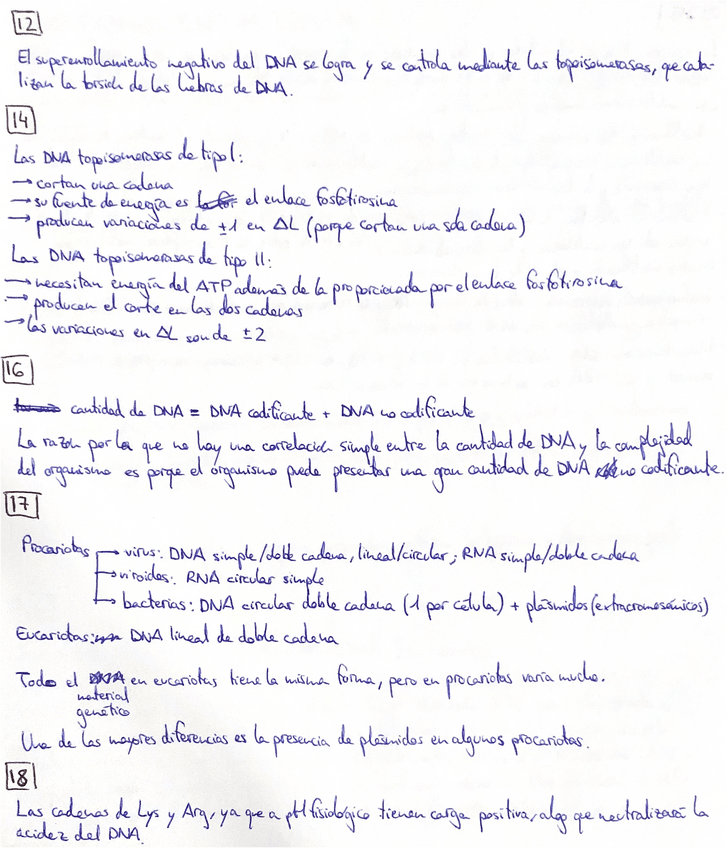 12
El superenrollamiento negativo del DNA se logra y se controla mediante las topoisomerasas, que cata-
lizan la torsión de las hebras de DNA.
14
Las DNA topoisomerasas de tipo I:
→ cortan una cadena
→ su fuente de energía es el enlace fosfotirosina
→ producen variaciones de ±1 en ΔL (porque cortan una sola cadena)
Las DNA topoisomerasas de tipo II:
→ necesitan energía del ATP además de la proporcionada por el enlace fosfotirosina
→ producen el corte en las dos cadenas
→ las variaciones en ΔL son de ±2
16
cantidad de DNA = DNA codificante + DNA no codificante
La razón por la que no hay una correlación simple entre la cantidad de DNA y la complejidad
del organismo es porque el organismo puede presentar una gran cantidad de DNA no codificante.
17
Procariotas → virus: DNA simple/doble cadena, lineal/circular; RNA simple/doble cadena
→ viroides: RNA circular simple
→ bacterias: DNA circular doble cadena (1 por célula) + plásmidos (extracromosómicos)
Eucariotas: DNA lineal de doble cadena
Todo el en eucariotas tiene la misma forma, pero en procariotas varía mucho.
material
genético
Una de las mayores diferencias es la presencia de plásmidos en algunos procariotas.
18
Las cadenas de Lys y Arg, ya que a pH fisiológico tienen carga positiva, algo que neutralizará la
acidez del DNA.